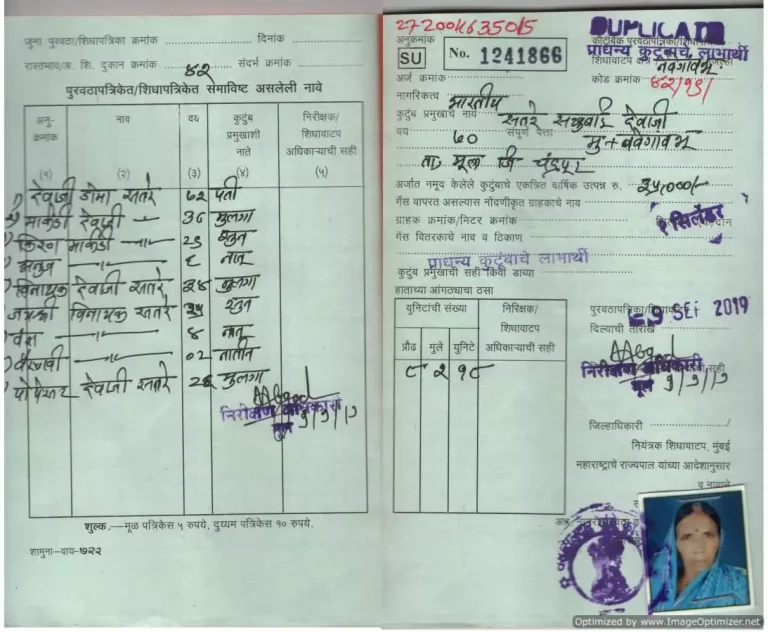 जुना पुरवठा/शिधापत्रिका क्रमांक दिनांक
रास्तभाव/अ. शि. दुकान क्रमांक ४२ संदर्भ क्रमांक
पुरवठापत्रिकेत/शिधापत्रिकेत समाविष्ट असलेली नावे
अनु-क्रमांक नाव वय कुटुंब प्रमुखाशी नाते निरीक्षक/शिधावाटप अधिकाऱ्याची सही
(१) (२) (३) (४) (५)
देवाजी डोमा सातरे ७२ पती
मार्कंडी देवाजी -"- 36 मुलगा
किरण मार्कंडी -"- सुन
अनुज -"- ६ नातू
विनायक देवाजी सातरे ३४ मुलगा
विनायक सातरे सुन
वंश -"- ४ नातू
वैष्णवी -"- ०२ नातीन
देवाजी सातरे मुलगा
निरीक्षण अधिकारी
मूल
शुल्क.—मूळ पत्रिकेस ५ रुपये, दुय्यम पत्रिकेस १० रुपये.
शामुना—वाय-७२२
272004635015
DUPLICATE
अनुक्रमांक
SU No. 1241866
प्राधन्य कुटुंबाचे लाभार्थी
नवेगांव भु.
अर्ज क्रमांक कोड क्रमांक ४२/१९/
नागरिकत्व भारतीय
कुटुंब प्रमुखाचे नाव सातरे देवाजी
वय ७० संपूर्ण पत्ता
ता. मूल जि चंद्रपूर
अर्जात नमूद केलेले कुटुंबाचे एकत्रित वार्षिक उत्पन्न रु. ३५०००/-
गॅस वापरत असल्यास नोंदणीकृत ग्राहकाचे नाव
ग्राहक क्रमांक/मिटर क्रमांक १ सिलेंडर
गॅस वितरकाचे नाव व ठिकाण
प्राधन्य कुटुंबाचे लाभार्थी
कुटुंब प्रमुखाची सही किंवा डाव्या
हाताच्या आंगठ्याचा ठसा
युनिटांची संख्या निरिक्षक/शिधावाटप अधिकाऱ्याची सही
प्रौढ मुले युनिटे
८ २ १८
SEP 2019
दिल्याची तारीख
निरीक्षण अधिकारी
मूल
जिल्हाधिकारी
नियंत्रक शिधावाटप, मुंबई
महाराष्ट्राचे राज्यपाल यांच्या आदेशानुसार
व नावाने
Optimized by www.ImageOptimizer.net